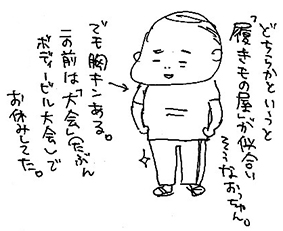 どちらかというと
「履きもの屋」が似合い
そうなおっちゃん。
でも胸キンある。
この前は「大会」（たぶん
ボディービル大会）で
お休みしてた。